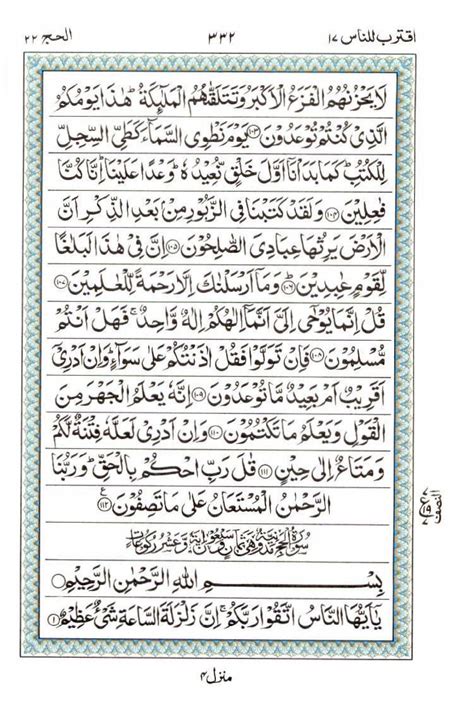 اقترب للناس ١٧ ٣٣٢ الحج ٢٢
لَا يَحْزُنُهُمُ الْفَزَعُ الْاَكْبَرُ وَتَتَلَقّٰىهُمُ الْمَلٰٓئِكَةُ ؕ هٰذَا يَوْمُكُمُ
الَّذِیْ كُنْتُمْ تُوْعَدُوْنَ ﴿۱۰۳﴾ يَوْمَ نَطْوِی السَّمَآءَ كَطَیِّ السِّجِلِّ
لِلْكُتُبِ ؕ كَمَا بَدَاْنَاۤ اَوَّلَ خَلْقٍ نُّعِيْدُهٗ ؕ وَعْدًا عَلَيْنَا ؕ اِنَّا كُنَّا
فٰعِلِيْنَ ﴿۱۰۴﴾ وَلَقَدْ كَتَبْنَا فِی الزَّبُوْرِ مِنْۢ بَعْدِ الذِّكْرِ اَنَّ
الْاَرْضَ يَرِثُهَا عِبَادِیَ الصّٰلِحُوْنَ ﴿۱۰۵﴾ اِنَّ فِیْ هٰذَا لَبَلٰغًا
لِّقَوْمٍ عٰبِدِيْنَ ﴿۱۰۶﴾ وَمَاۤ اَرْسَلْنٰكَ اِلَّا رَحْمَةً لِّلْعٰلَمِيْنَ ﴿۱۰۷﴾
قُلْ اِنَّمَا يُوْحٰۤی اِلَیَّ اَنَّمَاۤ اِلٰهُكُمْ اِلٰهٌ وَّاحِدٌ ۚ فَهَلْ اَنْتُمْ
مُّسْلِمُوْنَ ﴿۱۰۸﴾ فَاِنْ تَوَلَّوْا فَقُلْ اٰذَنْتُكُمْ عَلٰی سَوَآءٍ ؕ وَاِنْ اَدْرِیْۤ
اَقَرِيْبٌ اَمْ بَعِيْدٌ مَّا تُوْعَدُوْنَ ﴿۱۰۹﴾ اِنَّهٗ يَعْلَمُ الْجَهْرَ مِنَ
الْقَوْلِ وَيَعْلَمُ مَا تَكْتُمُوْنَ ﴿۱۱۰﴾ وَاِنْ اَدْرِیْ لَعَلَّهٗ فِتْنَةٌ لَّكُمْ
وَمَتَاعٌ اِلٰی حِيْنٍ ﴿۱۱۱﴾ قٰلَ رَبِّ احْكُمْ بِالْحَقِّ ؕ وَرَبُّنَا
الرَّحْمٰنُ الْمُسْتَعَانُ عَلٰی مَا تَصِفُوْنَ ﴿۱۱۲﴾
سورة الحج مدنية وهي ثمان وسبعون اية وعشر ركوعات
بِسْمِ اللّٰهِ الرَّحْمٰنِ الرَّحِيْمِ
يٰۤاَيُّهَا النَّاسُ اتَّقُوْا رَبَّكُمْ ۚ اِنَّ زَلْزَلَةَ السَّاعَةِ شَیْءٌ عَظِيْمٌ ﴿۱﴾
منزل ۴